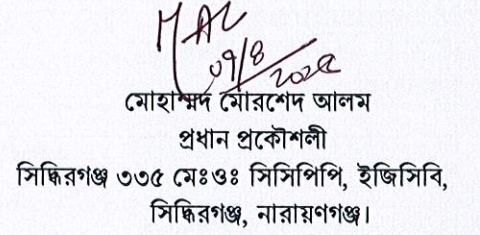 ০৭/৮
মোহাম্মদ মোরশেদ আলম
প্রধান প্রকৌশলী
সিদ্ধিরগঞ্জ ৩৩৫ মেঃওঃ সিসিপিপি, ইজিসিবি,
সিদ্ধিরগঞ্জ, নারায়ণগঞ্জ।